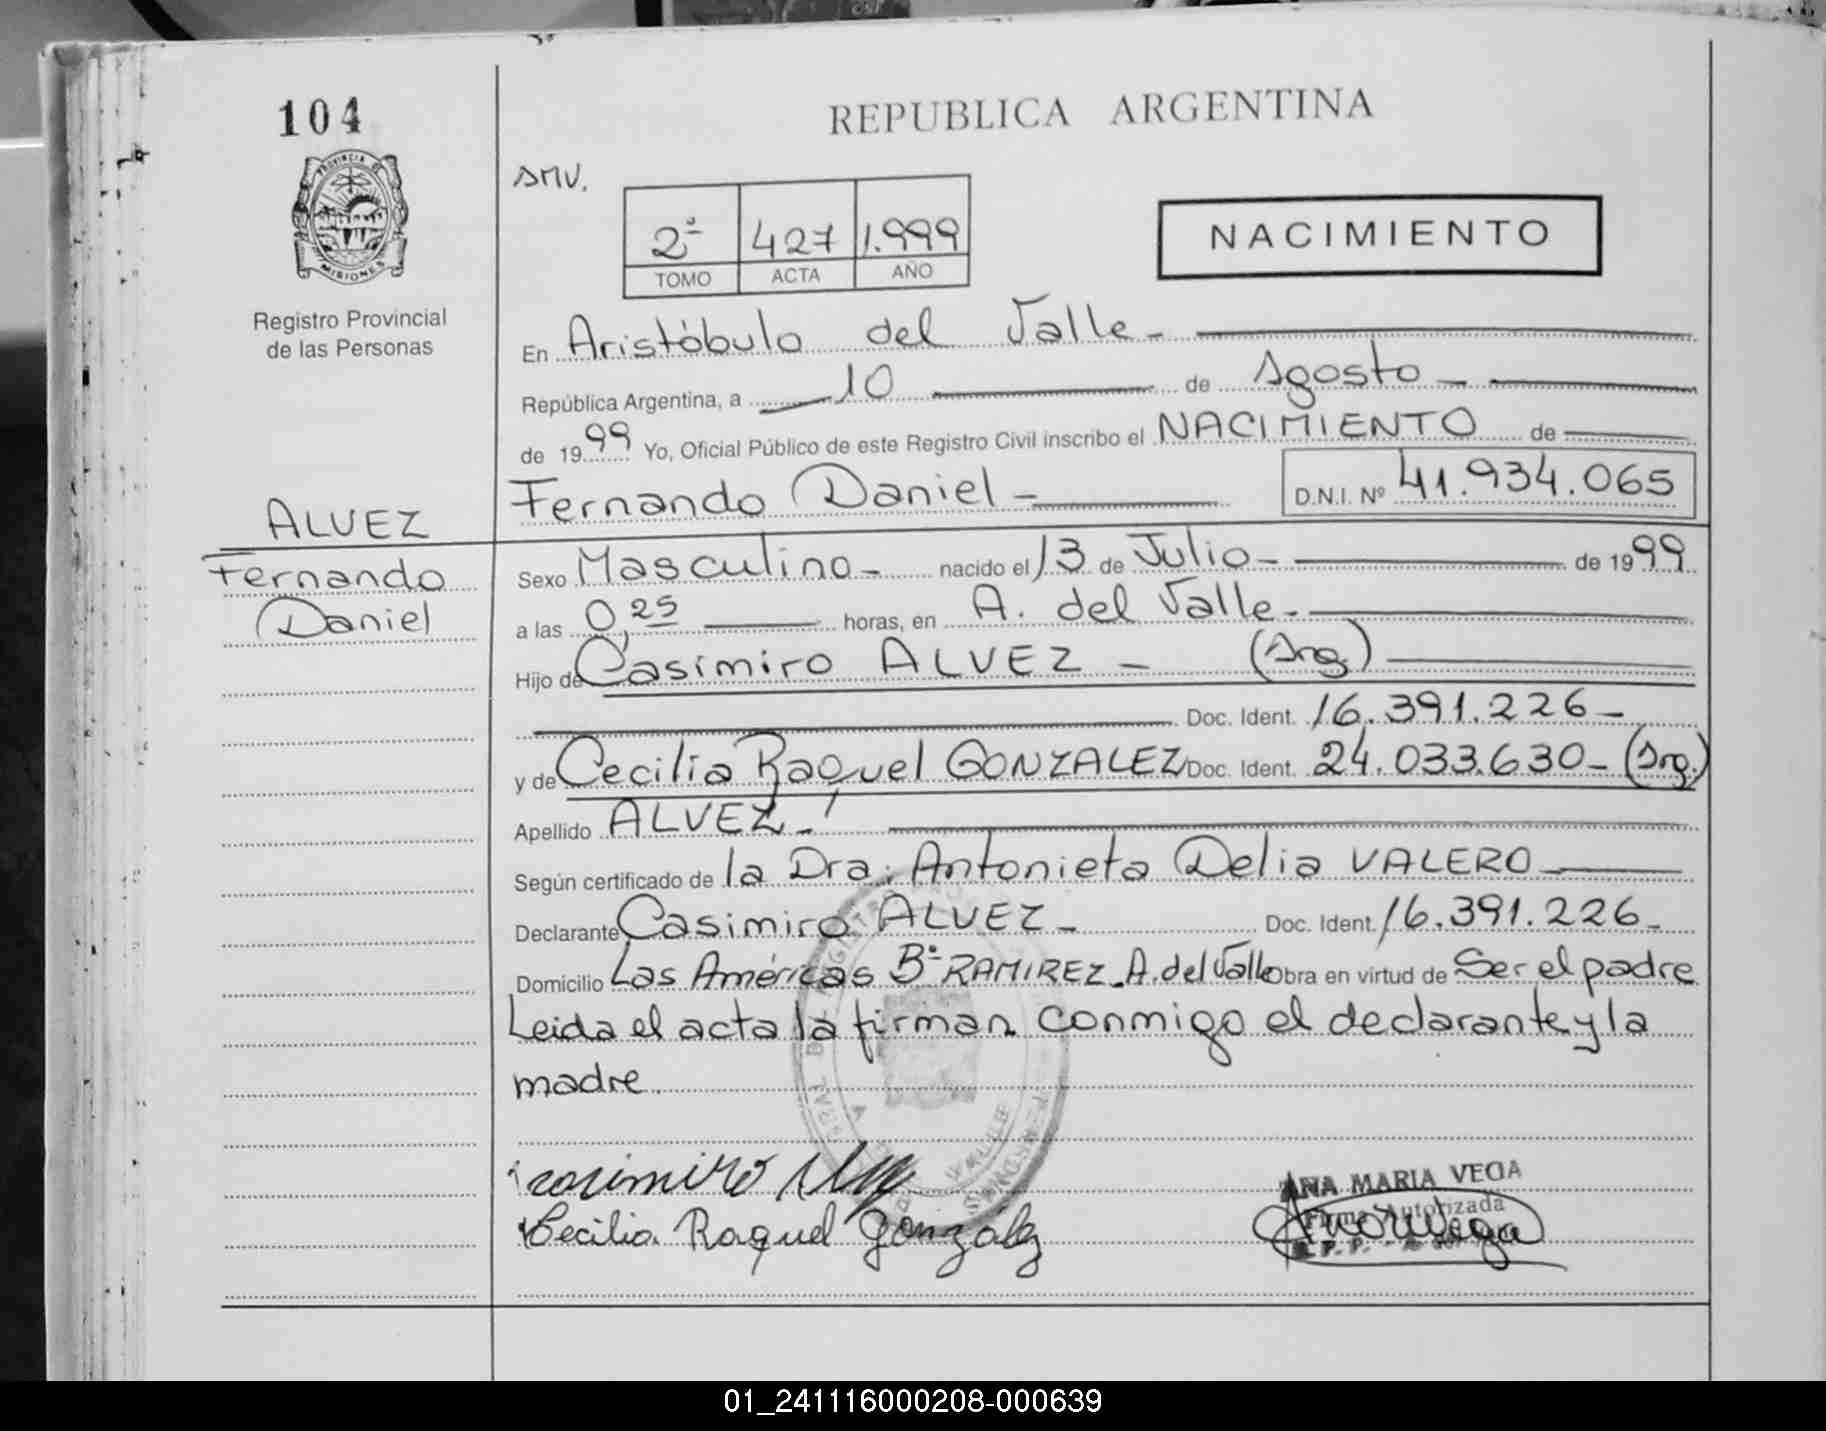 104
PROVINCIA DE
MISIONES
Registro Provincial
de las Personas
ALVEZ
Fernando
Daniel
REPUBLICA ARGENTINA
SMV.
2º 427 1.999
TOMO ACTA AÑO
NACIMIENTO
En Aristóbulo del Valle -
República Argentina, a 10 de Agosto -
de 1999 Yo, Oficial Público de este Registro Civil inscribo el NACIMIENTO de
Fernando Daniel - D.N.I. Nº 41.934.065
Sexo Masculino - nacido el 13 de Julio - de 1999
a las 0,25 horas, en A. del Valle -
Hijo de Casimiro ALVEZ - (Arg.)
Doc. Ident. 16.391.226 -
y de Cecilia Raquel GONZALEZ Doc. Ident. 24.033.630 - (Arg.)
Apellido ALVEZ -
Según certificado de la Dra: Antonieta Delia VALERO
Declarante Casimiro ALVEZ - Doc. Ident. 16.391.226 -
Domicilio Las Américas Bº RAMIREZ - A. del Valle Obra en virtud de Ser el padre
Leida el acta la firman conmigo el declarante y la
madre.
Casimiro
Cecilia Raquel Gonzalez
ANA MARIA VEGA
Firma Autorizada
01_241116000208-000639